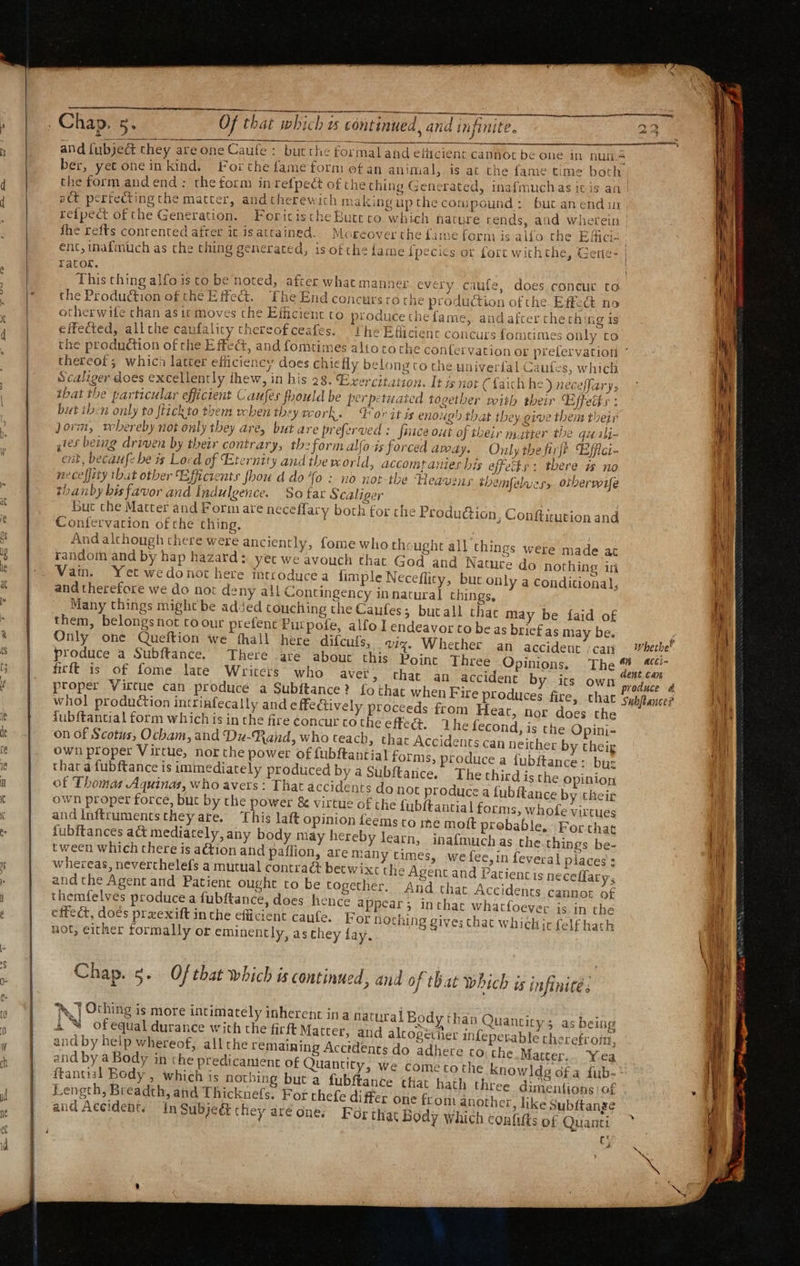 Chap. 5. Of that which is continued, and infinite. 23
and subject they are one Cause : but the formal and efficient cannot be one in num-
ber, yet one in kind. For the same form of an animal, is at the same time both
the form and end : the form in respect of the thing Generated, inasmuch as it is an
act perfecting the matter, and therewith making up the compound : but an end in
respect of the Generation. For it is the Butt to which nature tends, and wherein
she rests contented after it is attained. Moreover the same form is also the Effici-
ent, inasmuch as the thing generated, is of the same species or sort with the, Gene-
rator.
This thing also is to be noted, after what manner every cause, does concur to
the Production of the Effect. The End concurs to the production of the Effect no
otherwise than as it moves the Efficient to produce the same, and after the thing is
effected, all the causality thereof ceases. The Efficient concurs somtimes only to
the production of the Effect, and somtimes also to the conservation or preservation
thereof ; which latter efficiency does chiefly belong to the universal Causes, which
Scaliger does excellently shew, in his 28. Exercitation. It is not (saith he) necessary,
that the particular efficient Causes should be perpetuated together with their Effects :
but then only to stick to them when they work. For it is enough that they give them their
form, whereby not only they are, but are preserved : since out of their matter the quali-
ties being driven by their contrary, the form also is forced away. Only the first Effici-
ent, because he is Lord of Eternity and the world, accompanies his effects : there is no
necessity that other Efficients shou'd do so : no not the Heavens themselves, otherwise
than by his favor and Indulgence. So far Scaliger
But the Matter and Form are necessary both for the Production, Constitution and
Conservation of the thing.
And although there were anciently, some who thought all things were made at
random and by hap hazard : yet we avouch that God and Nature do nothing in
Vain. Yet we do not here introduce a simple Necessity, but only a conditional,
and therefore we do not deny all Contingency in natural things.
Many things might be added touching the Causes ; but all that may be said of
them, belongs not to our present Purpose, also I endeavor to be as brief as may be.
Only one Question we shall here discuss, viz. Whether an accident can Whether
produce a Substance. There are about this Point Three Opinions. The an acci-
first is of some late Writers who aver, that an accident by its own dent can
proper Virtue can produce a Substance ? so that when Fire produces fire, that produce a
whol production intrinsecally and effectively proceeds from Heat, nor does the Substance?
substantial form which is in the fire concur to the effect. The second, is the Opini-
on of Scotus, Ocham, and Du-Rand, who teach, that Accidents can neither by their
own proper Virtue, nor the power of substantial forms, produce a substance : but
that a substance is immediately produced by a Substance. The third is the opinion
of Thomas Aquinas, who avers : That accidents do not produce a substance by their
own proper force, but by the power & virtue of the substantial forms, whose virtues
and Instruments they are. This last opinion seems to me most probable. For that
substances act mediately, any body may hereby learn, inasmuch as the things be-
tween which there is action and passion, are many times, we see, in several places :
whereas, nevertheless a mutual contract betwixt the Agent and Patient is necessary,
and the Agent and Patient ought to be together. And that Accidents cannot of
themselves produce a substance, does hence appear ; in that whatsoever is in the
effect, does præexist in the efficient cause. For nothing gives that which it self hath
not, either formally or eminently, as they say.
Chap. 5. Of that which is continued, and of that which is infinite.
NOthing is more intimately inherent in a natural Body than Quantity ; as being
of equal durance with the first Matter, and altogether inseperable therefrom,
and by help whereof, all the remaining Accidents do adhere to the Matter. Yea
and by a Body in the predicament of Quantity, we come to the knowldg of a sub-
stantial Body, which is nothing but a substance that hath three dimensions of
Length, Breadth, and Thickness. For these differ one from another, like Substance
and Accident. In Subject they are one. For that Body which consists of Quanti
ty